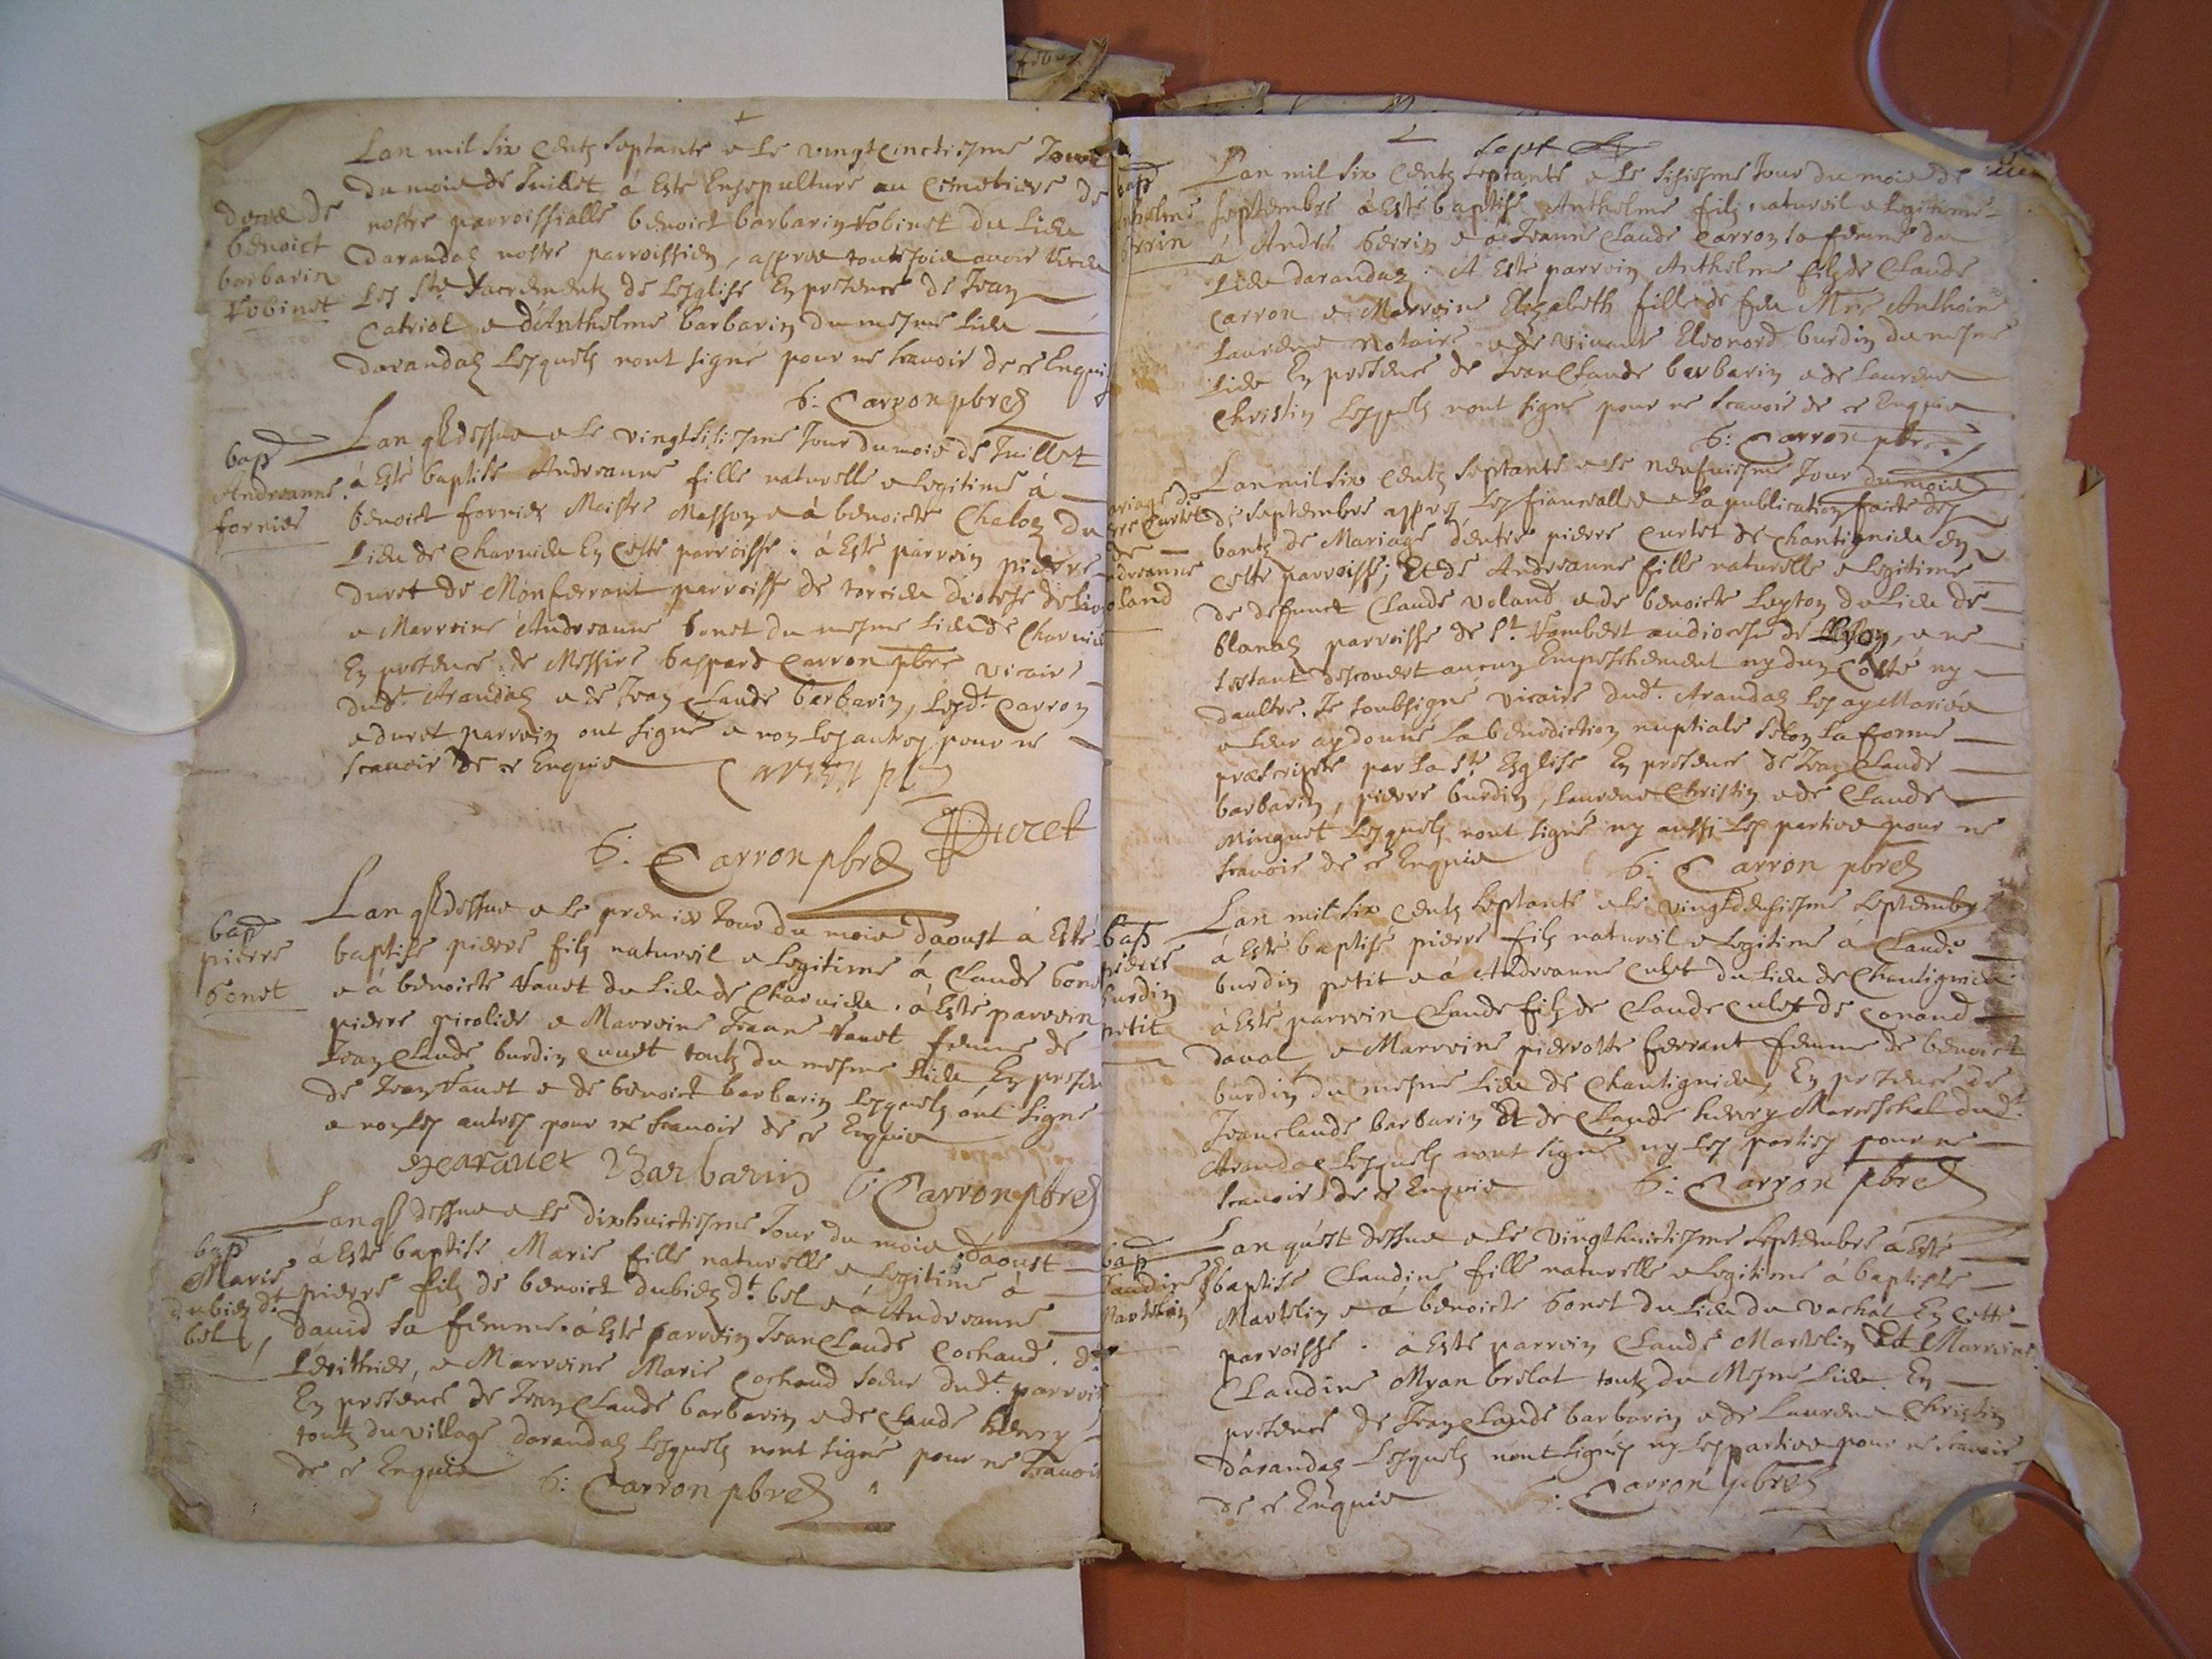 Lan mil six centz septante & le vingtcinctiesme Jour
du mois de Juillet à Esté Ensepulturé au Cimetiere de
nostre parroissialle benoict barbarin Vobinet du Lieu
darandaz nostre parroissien, appres toutesfois avoir Receu
les Stz Sacrementz de Lesglise En presence de Jean
Catriol & d'Anthelme barbarin du mesme Lieu
darandaz Lesquelz nont signé pour ne scavoir de ce Enquis
G: Carron pbre
deces de
benoict
barbarin
Vobinet
Lan q dessus & le vingtsisiesme Jour du mois de Juillet
à Esté baptisé Andreanne fille naturelle & legitime à
benoict fornier Maistre Masson & à benoicte Chaloz du
Lieu de Charvieu En Cette parroisse. à Esté parrein pierre
duret de Monferrant parroisse de torcieu diocese de Lion
& Marreine Andreanne bonet du mesme Lieu de Charvieu
En presence de Messire gaspard Carron pbre vicaire
dudt. Arandaz & de Jean Claude barbarin, Lesdt. Carron
& duret parrein ont signé & non les autres pour ne
scavoir de ce Enquis Carron pbre
Duret
G: Carron pbre
bap
Andreanne
fornier
Lan q dessus & le premier Jour du mois daoust à Esté
baptisé pierre filz naturel & legitime à Claude bonet
& à benoicte Vanet du Lieu de Charvieu. à Esté parrein
pierre picolier & Marreine Jeanne Vanet femme de
Jean Claude burdin cuuet toutz du mesme Lieu En presence
de Jean Vanet & de benoict barbarin Lesquelz ont signé
& non les autres pour ne scavoir de ce Enquis
Barbarin G: Carron pbre
bap
pierre
bonet
Lan q dessus & le dixhuictiesme Jour du mois daoust
à Esté baptisé Marie fille naturelle & legitime à
pierre filz de benoict dubiez dt. bel & à Andreanne
david sa femme. à Esté parrein Jean Claude Cochaud. de
& Marreine Marie Cochaud soeur dudt. parrein
En presence de Jean Claude barbarin & de Claude hevry
toutz du village darandaz Lesquelz nont signé pour ne scavoir
de ce Enquis G: Carron pbre
bap
Marie
dubiez dt.
bel
sept
Lan mil six centz septante & le sisiesme Jour du mois de
septembre à Esté baptisé Anthelme filz naturel & legitime
à André perrin & à Jeanne Claude Carron sa femme du
Lieu darandaz. A Esté parrein Anthelme filz de Claude
Carron & Marreine Elizabeth fille de feu Mre Anthoine
Laurent Notaire & de vivante Eleonord burdin du mesme
Lieu En presence de Jean Claude barbarin & de Laurent
Christin Lesquelz nont signé pour ne scavoir de ce Enquis
G: Carron pbre
bap
Lan mil six centz septante & le neufviesme Jour du mois
de septembre appres les fiancealles & la publication faicte des
bantz de Mariage d'entre pierre Curtet de Chantignieu en
Cette parroisse; Et de Andreanne fille naturelle & legitime
de defunct Claude voland & de benoicte Leyton du Lieu de
blanaz parroisse de St. Rambert au diocese de Lyon, & ne
sestant descouvert aucun Empeschement ny dun Costé ny
daultre. Je soubsigné vicaire dudt. Arandaz les ay Mariés
& leur ay donné la benediction nuptiale selon la forme
prescripte par la Ste Esglise En presence de Jean Claude
barbarin, pierre burdin, Laurent Christin & de Claude
Minguet Lesquelz nont signé ny aussi les parties pour ne
scavoir de ce Enquis G: Carron pbre
Lan mil six centz septante & le vingtdeusiesme septembre
à Esté baptisé pierre filz naturel & legitime à Claude
burdin petit & à Andreanne culet du Lieu de Chantignieu
à Esté parrein Claude filz de Claude culet de Conand
daval & Marreine pierrotte ferrant femme de benoict
burdin du mesme Lieu de Chantignieu, En presence de
Jean claude barbarin Et de Claude hevry Mareschal dudt.
Arandaz Lesquelz nont signé ny les parties pour ne
scavoir de ce Enquis G: Carron pbre
bap
pierre
burdin
petit
Lan quest dessus & le vingthuictiesme septembre à Esté
baptisé Claudine fille naturelle & legitime à baptiste
Martelin & à benoicte bonet du Lieu du vachat En Cette
parroisse. à Esté parrein Claude Martelin Et Marreine
Claudine Myan brelat toutz du Mesme Lieu. En
presence de Jean Claude barbarin & de Laurent Christin
darandaz Lesquelz nont signés ny les parties pour ne scavoir
de ce Enquis G: Carron pbre
bap
Claudine
Martelin